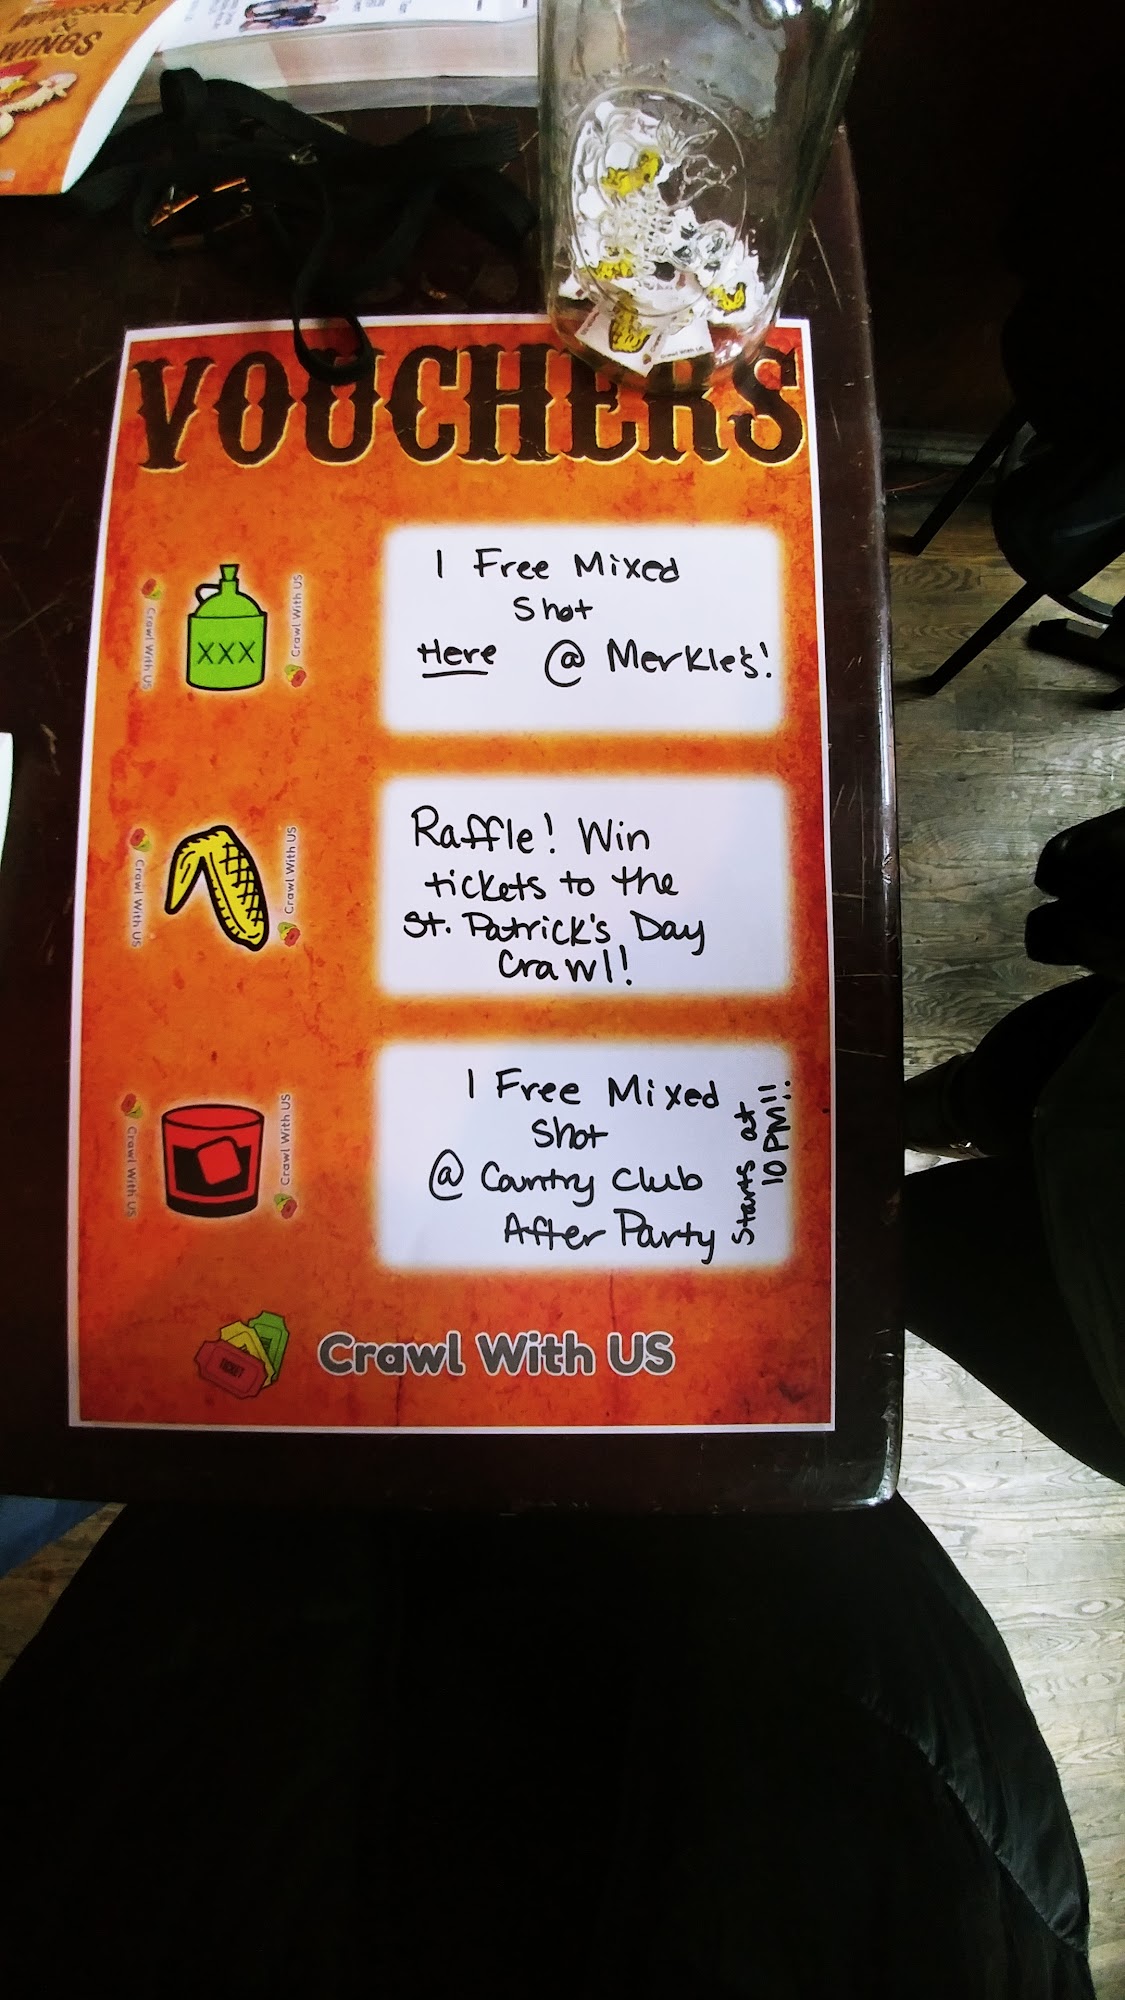 WHISKEY
&
WINGS
VOUCHERS
Crawl With US
XXX
Crawl With US
1 Free Mixed
Shot
Here @ Merkle's!
Crawl With US
Crawl With US
Raffle! Win
tickets to the
St. Patrick's Day
Crawl!
Crawl With US
Crawl With US
1 Free Mixed
Shot
@ Country Club
After Party
Starts at
10 PM!!
TICKET
Crawl With US
Crawl With US